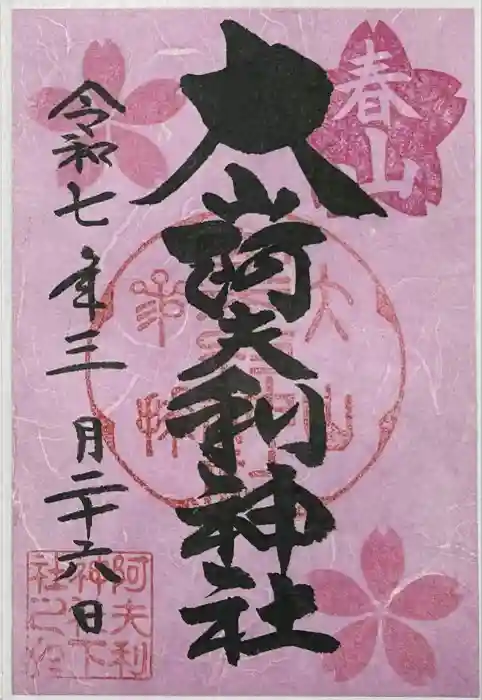 春山
大山阿夫利神社
令和七年三月二十六日
阿夫利
神社下
社之印